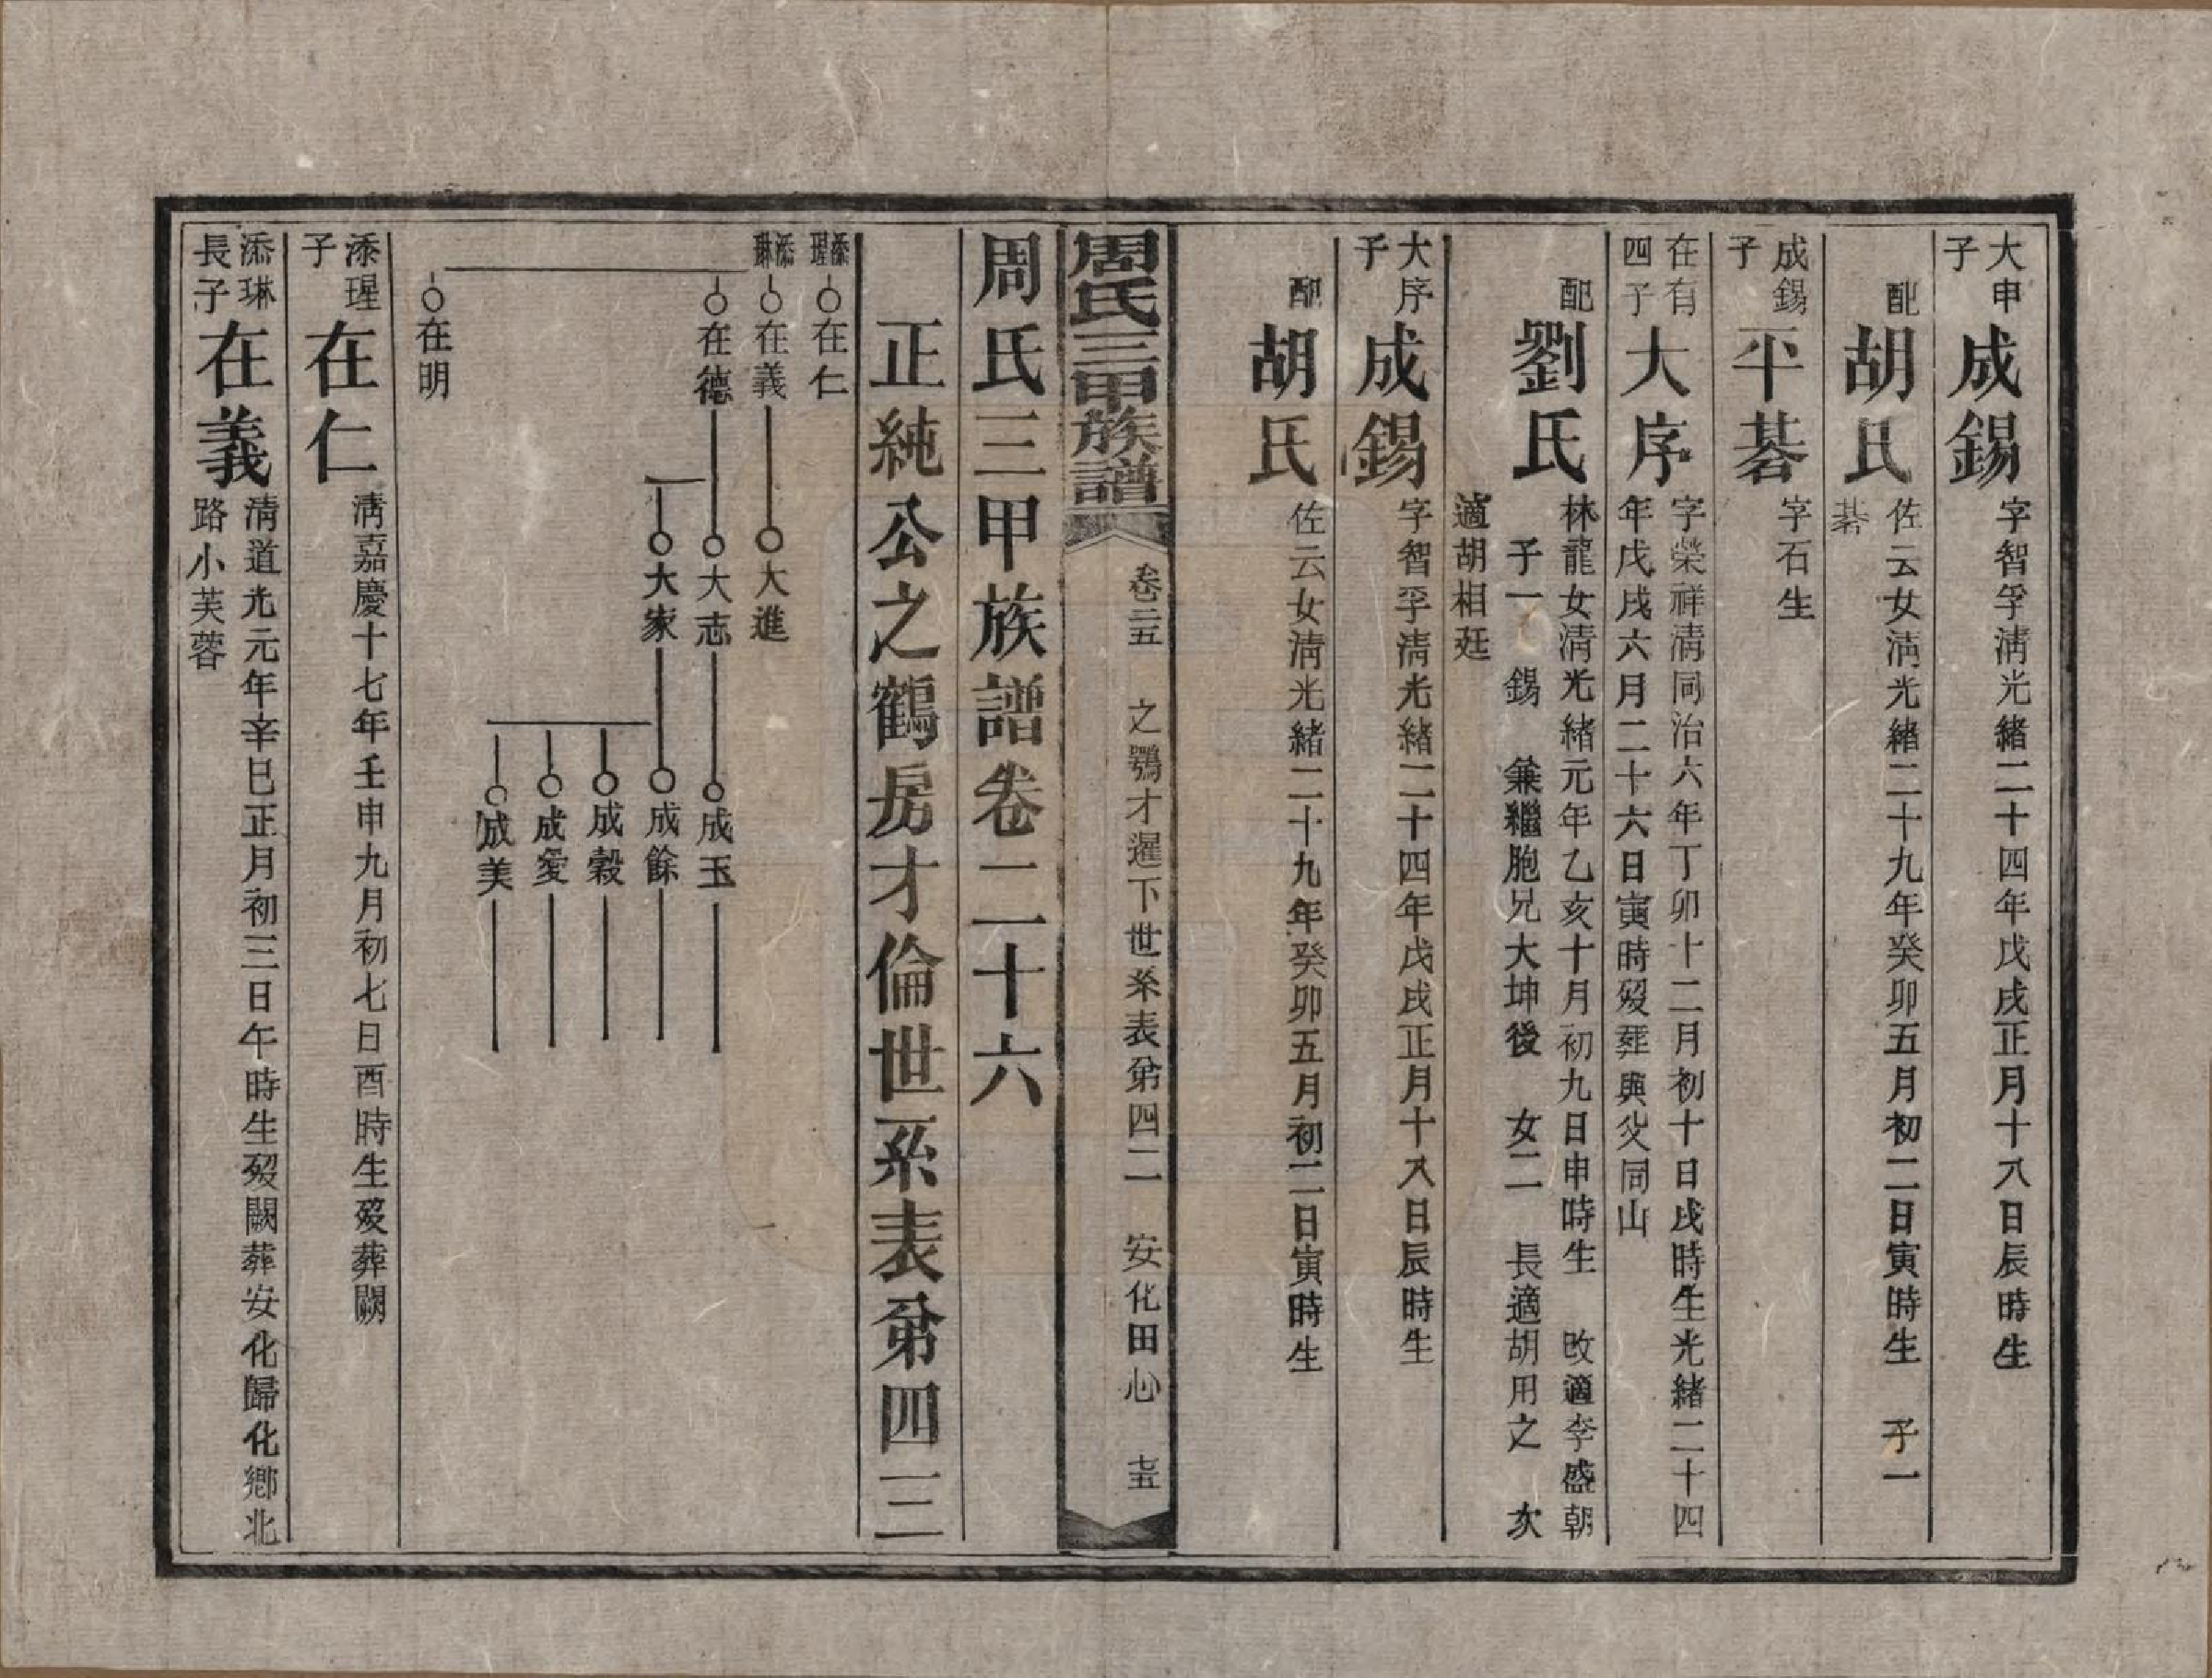 大申
子
成錫
字智孚清光緒二十四年戊戌正月十八日辰時生
配
胡氏
佐云女清光緒二十九年癸卯五月初二日寅時生 子一
碁
成錫
子
平碁
字石生
在有
四子
大序
字榮祥清同治六年丁卯十二月初十日戌時生光緒二十四
年戊戌六月二十六日寅時歿葬與父同山
配
劉氏
林龍女清光緒元年乙亥十月初九日申時生 改適李盛朝
子一 錫 兼繼胞兄大坤後 女二 長適胡用之 次
適胡相廷
大序
子
成錫
字智孚清光緒二十四年戊戌正月十八日辰時生
配
胡氏
佐云女清光緒二十九年癸卯五月初二日寅時生
周氏三甲族譜
卷二五 之鶚才暹下世系表弟四二 安化田心 七五
周氏三甲族譜卷二十六
正純公之鶴房才倫世系表弟四三
添瑆
在仁
添琳
在義
大進
在德
大志
成玉
大家
成餘
成穀
成愛
成美
在明
添瑆
子
在仁
清嘉慶十七年壬申九月初七日酉時生歿葬闕
添琳
長子
在義
清道光元年辛巳正月初三日午時生歿闕葬安化歸化鄉北
路小芙蓉